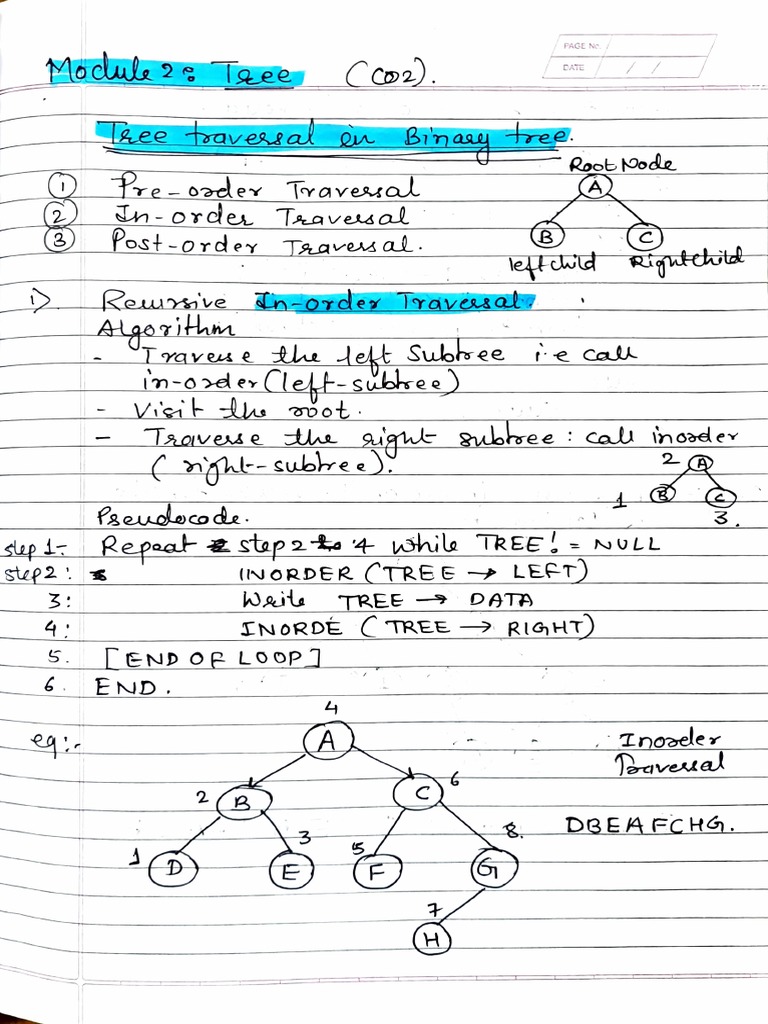 PAGE No.
DATE / /
Module 2: Tree (CO2).
Tree traversal in Binary tree.
Root Node
A
① Pre-order Traversal
② In-order Traversal
③ Post-order Traversal.
B C
left child Right Child
1) Recursive In-order Traversal.
Algorithm
- Traverse the left Subtree i.e call
in-order (left-subtree)
- Visit the root.
- Traverse the right subtree : call inorder
(right-subtree).
2 A
1 B C
3.
Pseudocode.
step 1:- Repeat step 2 to 4 while TREE! = NULL
step 2: INORDER (TREE → LEFT)
3: Write TREE → DATA
4: INORDE (TREE → RIGHT)
5. [END OF LOOP]
6. END.
4
eg:- A Inorder
Traversal
2 B C 6
DBEAFCHG.
1 D 3 E 5 F 8. G
7
H